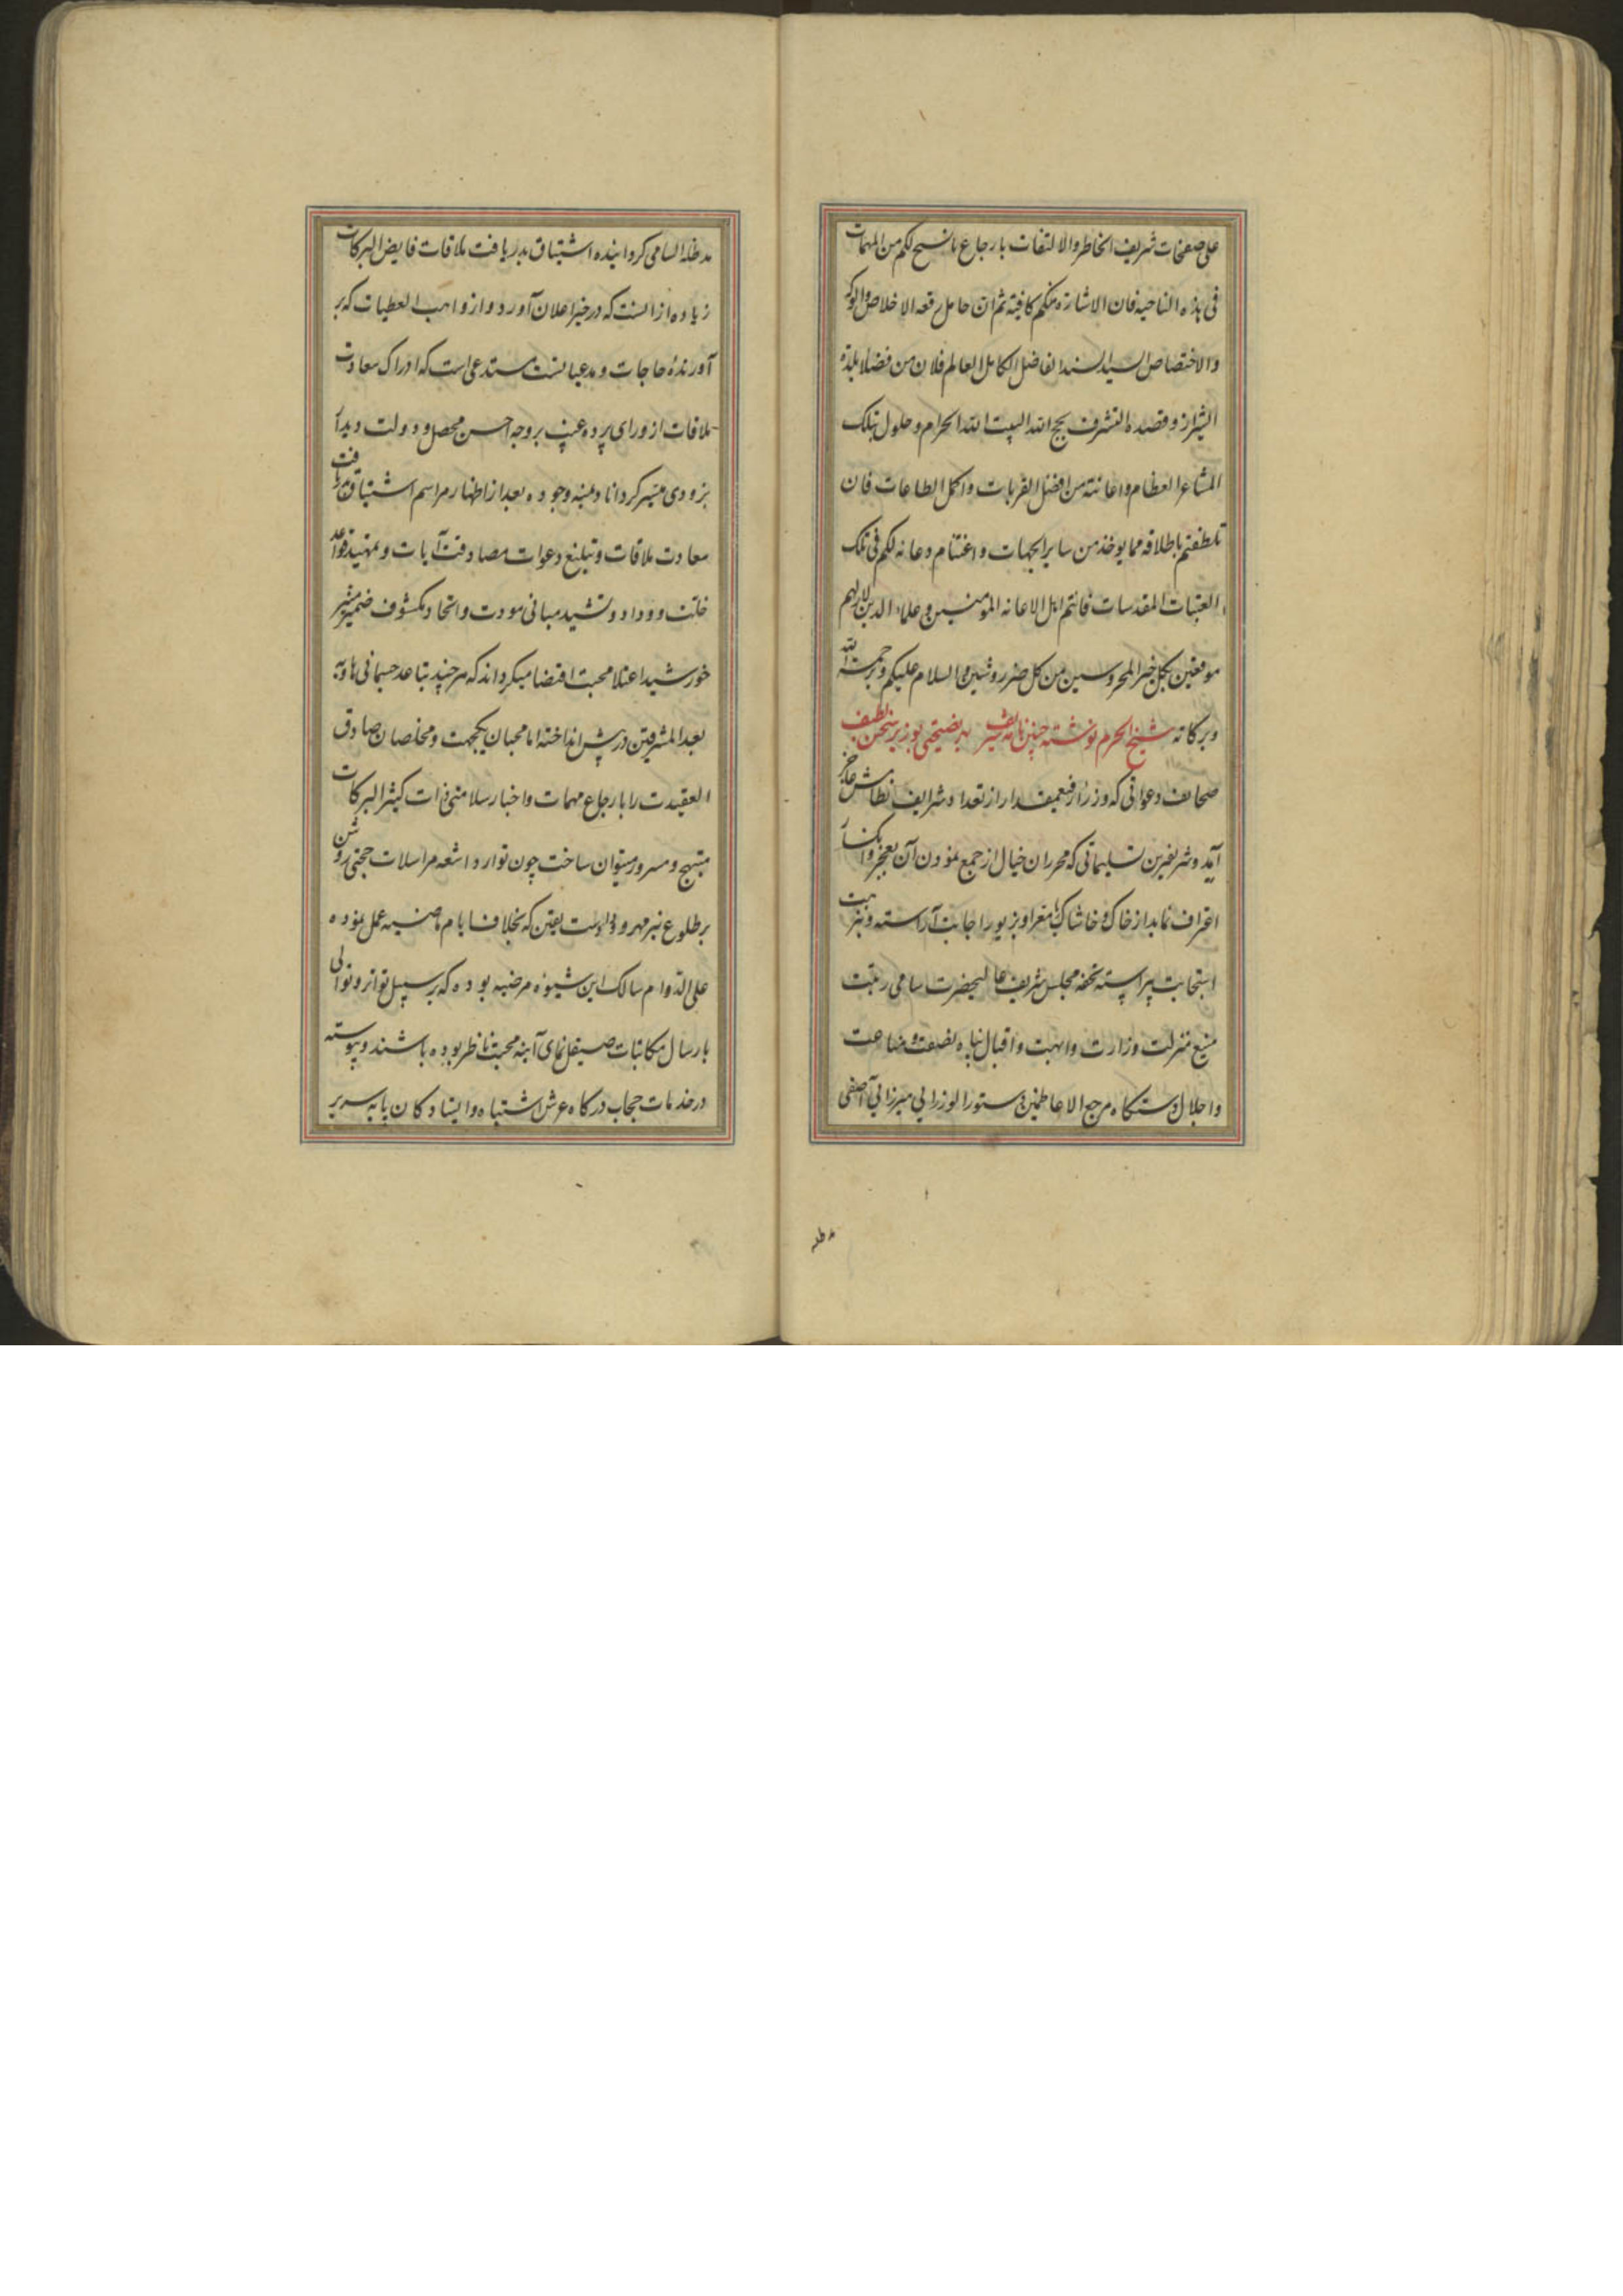 علی صفحات شریف الخاطر والالتفات بارجاع ما نسنح لکم من المهمات
فی هذه الناحیه فان الاشارة منکم کافیة ثم ان حامل رقعه الاخلاص
والاختصاص السید السند الفاضل الکامل العالم فلان من فضلا بلدة
الشیراز وقصده التشرف بحج الله البیت الله الحرام وحلول بتلک
المشاعر العظام واعانته من افضل القربات واکمل الطاعات فان
تلطفتم باطلاقه مما یوخذ من سایر الجهات واغتنام دعائه لکم فی تلک
العتبات المقدسات فانتم اهل الاعانه المؤمنین وعلماء الدین لازلتم
موفقین بکل خیر المحروسین من کل ضرر وشین والسلام علیکم ورحمت الله
وبرکاته شیخ الحرم نوشته چنین نامه شریف
صحائف دعواتی که وزراء رفیعمقدار از تعداد شرایف نظامش عاجز
آید وشریفترین تسلیماتی که محرران خیال از جمع نمودن آن بعجز وانکسار
اعتراف نماید از خاک وخاشاک معرا وبزیور اجابت آراسته وبزینت
استجابت پیراسته تحفه مجلس شریف عالیحضرت سامی رتبت
منیع منزلت وزارت وابهت واقبال پناه نصفت
واجلال دستگاه مرجع الاعاظمین دستور الوزرایی میرزایی آصفی
مد ظله
مد ظله السامی کردانیده اشتیاق بدریافت ملاقات فایض البرکات
زیاده ازانست که در حیز اعلان آورد واز واهب العطیات که بر
آورندهٔ حاجات ومدعیانست مستدعی است که ادراک سعادت
ملاقات از ورای پرده غیب بر وجه احسن محصل ودولت دیدار
بزودی میسر کرداناد بمنه وجوده بعد از اظهار مراسم اشتیاق دریافت
سعادت ملاقات وتبلیغ دعوات مصادفت آیات وتمهید قواعد
خلت ووداد وتشیید مبانی مودت واتحاد مکشوف ضمیر منیر
خورشید اعتلا محبت اقتضا میکرداند که هر چند تباعد جسمانی
بعد المشرقین در پیش انداخته اما محبان یکجهت ومخلصان صادق
العقیدت را بارجاع مهمات واخبار سلامتی ذات کثیر البرکات
مبتهج ومسرور میتوان ساخت چون توارد اشعه مراسلات حجتی روشن
بر طلوع نیر مهر یقین که بخلاف ایام ماضیه عمل نموده
علی الدوام سالک این شیوه مرضیه بوده که بر سبیل تواتر وتوالی
بارسال مکاتبات صیقل نمای آینه محبت ناظر بوده باشند وپیوسته
در خدمات حجاب درکاه عرش اشتباه وایستادکان پایه سریر